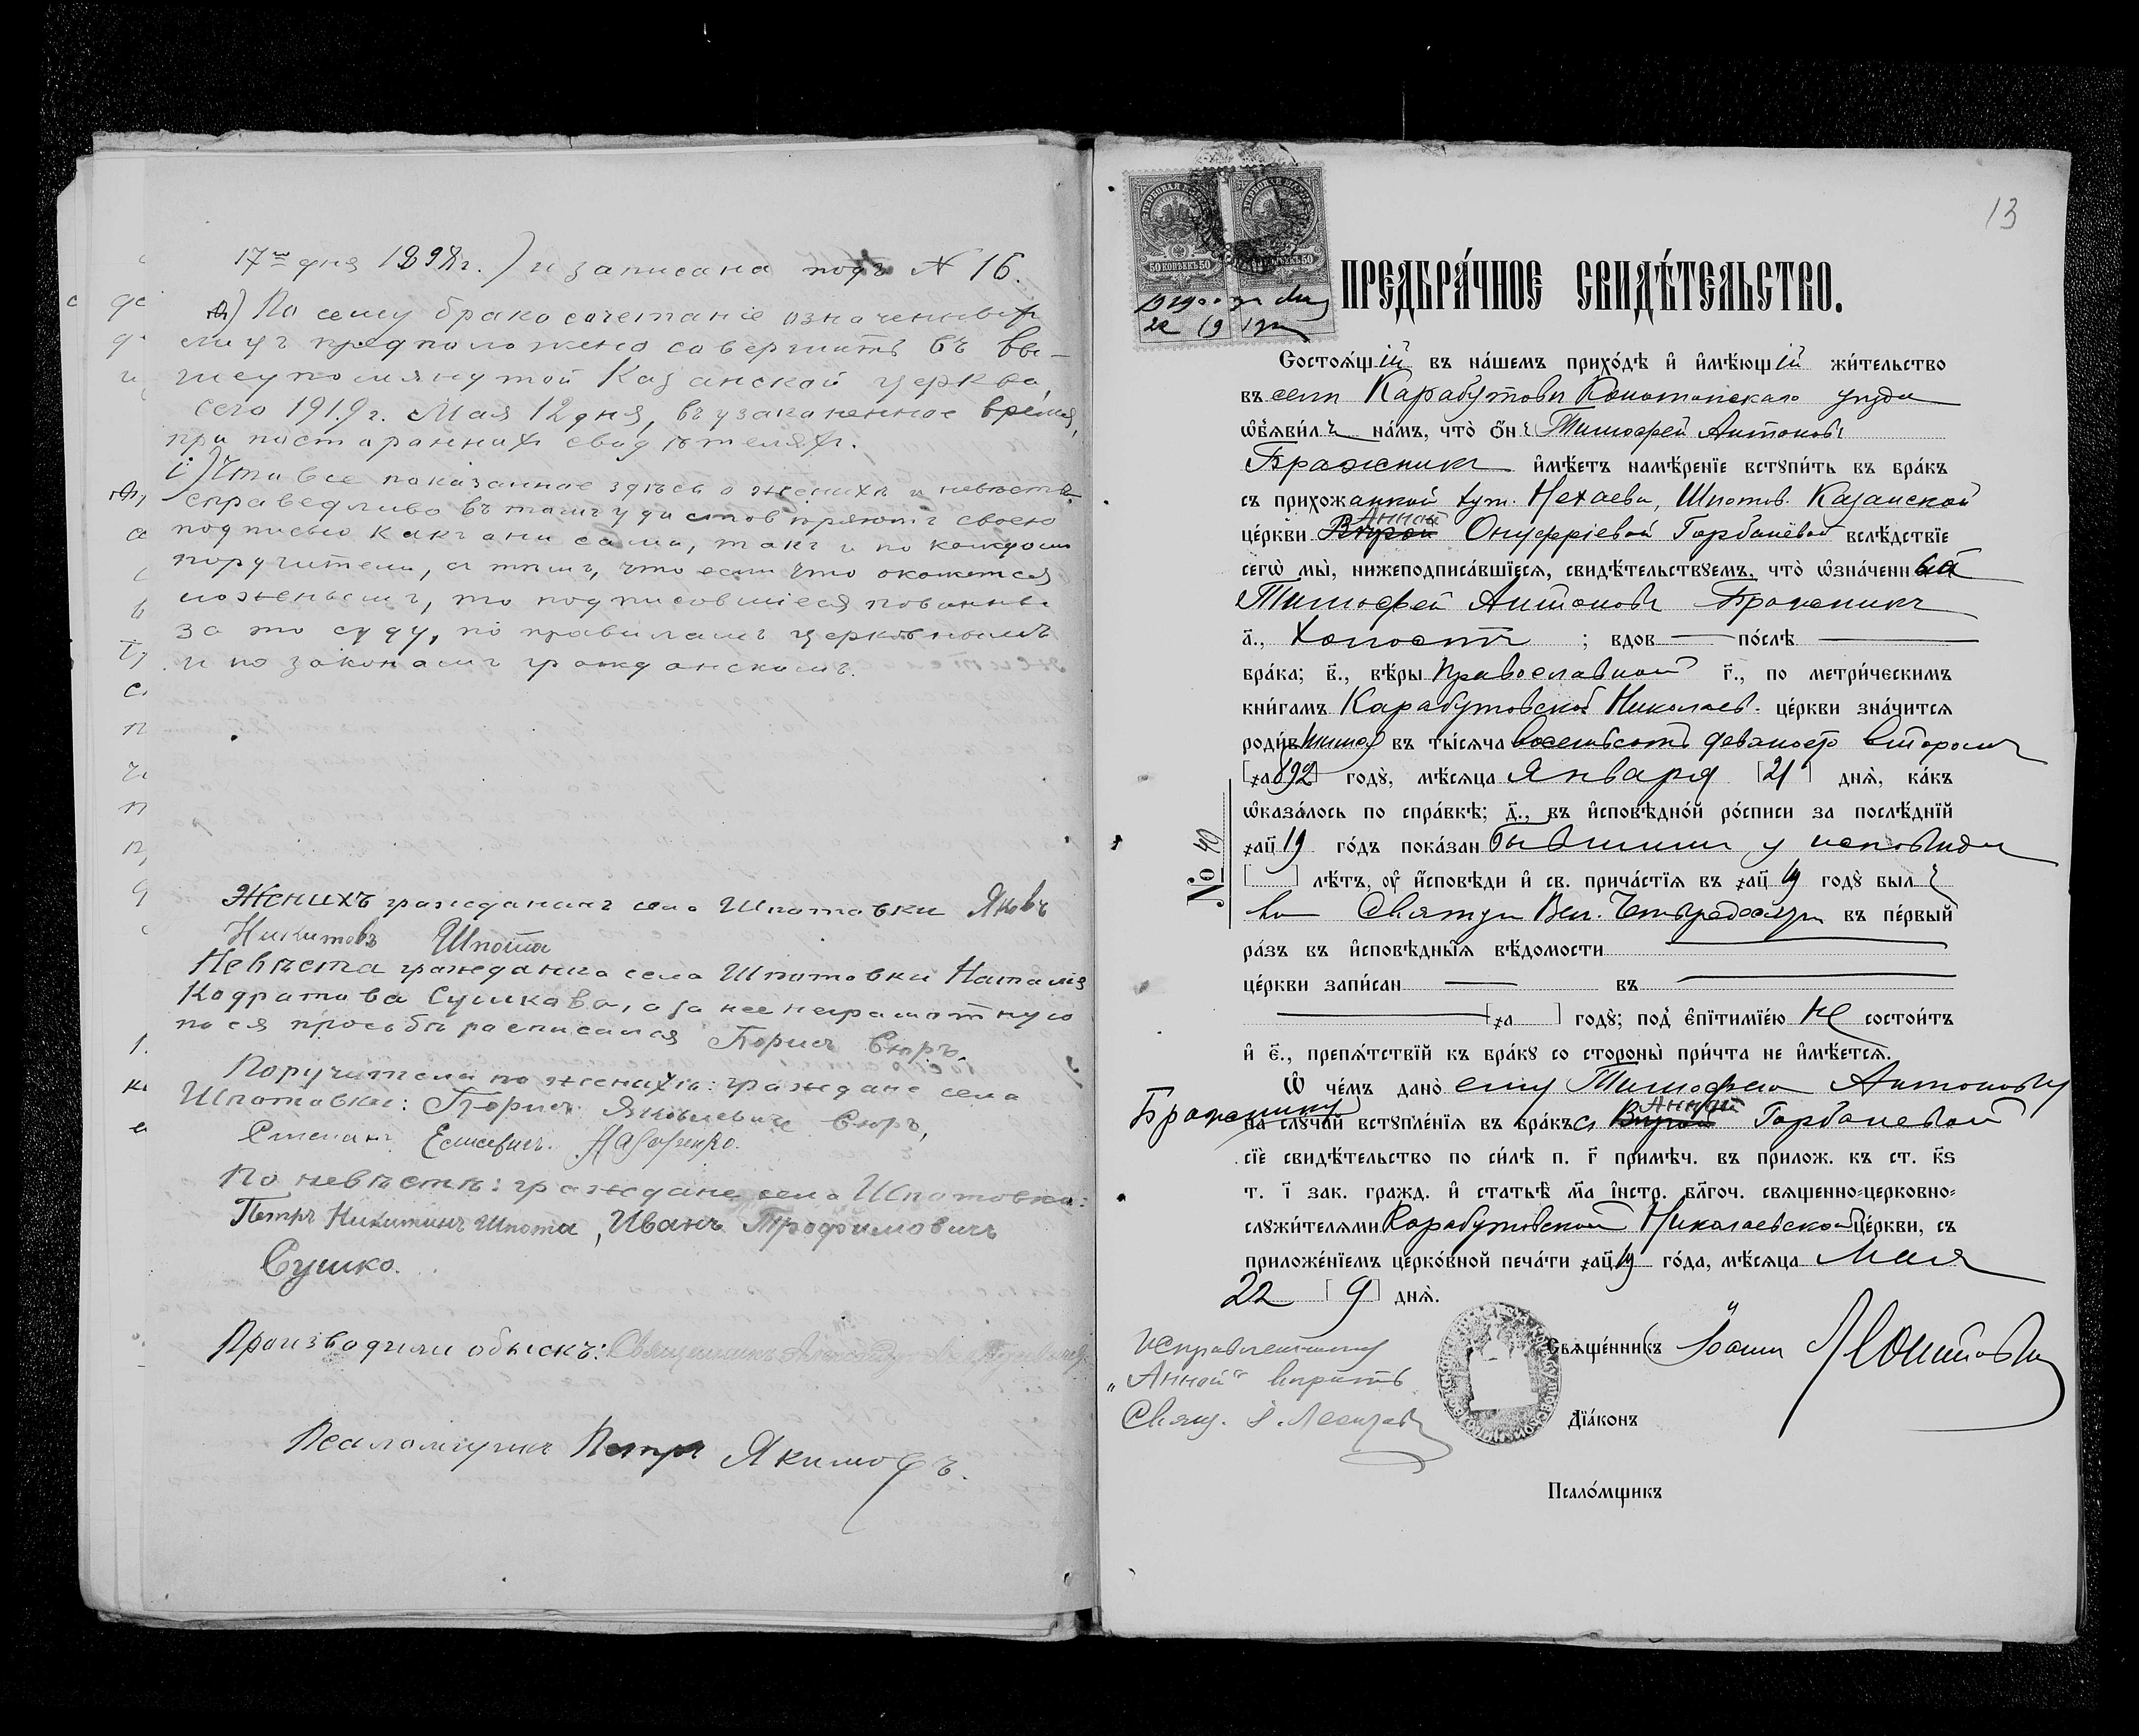 17го дня 1898 г.) и записана подъ № 16.
ѳ.) По сему бракосочетаніе означенныхъ
лицъ предположено совершить въ вы-
шеупомянутой Казанской церкви,
сего 1919 г. Мая 12 дня, въ узаконенное время,
при постороннихъ свидѣтеляхъ.
і) Что все показанное здѣсь о женихѣ и невѣстѣ
справедливо въ томъ удостовѣряютъ своею
подписью какъ они сами, такъ и по каждомъ
поручители, съ тѣмъ, что если что окажется
ложнымъ, то подписавшіеся повинны
за то суду, по правиламъ церковнымъ
и по законамъ гражданскимъ.
Женихъ гражданинъ села Шпотовки Яковъ
Никитовъ Шпота
Невѣста гражданка села Шпотовки Наталія
Кодратова Сушкова, а за нее неграмотную
по ея просьбѣ расписался Борисъ Сюръ.
Поручители по женихѣ: граждане села
Шпотовки: Борисъ Яковлевичъ Сюръ,
Степанъ Елисеевичъ
По невѣстѣ: граждане села Шпотовки:
Петръ Никитинъ Шпота, Иванъ Трофимовичъ
Сушко.
Производили обыскъ: Священникъ
Псаломщикъ Петръ Якимовъ.
13
50 КОПѢЕКЪ 50
1919 г. Мая
22 / 9 дня
ПРЕДБРА́ЧНОЕ СВИДѢ́ТЕЛЬСТВО.
Состоѧ́щій въ на́шемъ прихо́дѣ и҆ и҆мѣ́ющій жи́тельство
въ селѣ Карабутовѣ Конотопскаго уѣзда
ѡ҆бъѧви́лъ на́мъ, что̀ ѻ҆́нъ Тимофей Антоновъ
Бражникъ и҆мѣ́етъ намѣ́реніе вступи́ть въ бра́къ
съ прихожанкой хут. Нехаевки, Шпотов. Казанской
це́ркви Анной Онуфріевой Горбаневой вслѣ́дствіе
сегѡ̀ мы̀, нижеподписа́вшіесѧ, свидѣ́тельствꙋемъ, что̀ ѡ҆зна́ченный
Тимофей Антоновъ Бражникъ
а҃., холостъ ; вдов по́слѣ
бра́ка; в҃., вѣ́ры Православной г҃., по метри́ческимъ
кни́гамъ Карабутовской Николаев. це́ркви зна́читсѧ
роди́вшимсѧ въ ты́сѧча восемьсотъ девяносто второмъ
[҂а892] годꙋ̀, мѣ́сѧца Января [21] днѧ̀, ка́къ
ѡ҆каза́лось по спра́вкѣ; д҃., въ и҆сповѣ́дной ро́списи за послѣ́дній
҂ац҃19 го́дъ пока́зан бывшимъ у исповѣди
[ ] лѣ́тъ, ᲂу҆ и҆́сповѣди и҆ св. прича́стіѧ въ ҂ац҃19 годꙋ̀ былъ
на Святую Вел. Четыредесят. въ пе́рвый
ра́зъ въ и҆сповѣ́дныѧ вѣ́домости
це́ркви запи́сан въ
[҂а ] годꙋ̀; под̾ є҆пітиміе́ю не состои́тъ
и҆ є҃., препѧ́тствій къ бра́кꙋ со стороны̀ при́чта не и҆мѣ́етсѧ.
Ѡ҆ че́мъ дано̀ ему Тимофею Антоновичу
Бражнику
на слꙋ́чай вступле́ніѧ въ бра́къ съ Анной Горбаневой
сіѐ свидѣ́тельство по си́лѣ п. г҃ примѣ́ч. въ прилож. къ ст. к҃ѕ
т. і҃ зак. гражд. и҆ статьѣ̀ м҃а і҆нстр. бл҃гоч. свѧщенно-церковно-
слꙋжи́телѧми Карабутовской Николаевской це́ркви, съ
приложе́ніемъ церко́вной печа́ти ҂ац҃19 го́да, мѣ́сѧца Мая
22 [9] днѧ̀.
№ 40
Свѧще́нникъ Іоаннъ
Исправленному
„Анной“ вѣрить
Свящ. І.
Дїа́конъ
Псало́мщикъ